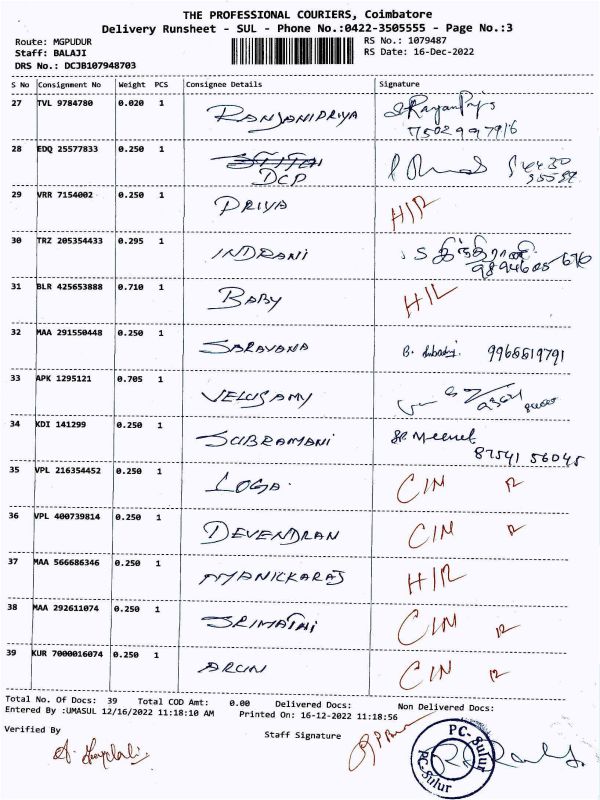 THE PROFESSIONAL COURIERS, Coimbatore
Delivery Runsheet - SUL - Phone No.:0422-3505555 - Page No.:3
Route: MGPUDUR
Staff: BALAJI
DRS No.: DCJB107948703
RS No.: 1079487
RS Date: 16-Dec-2022
S No Consignment No Weight PCS Consignee Details Signature
27 TVL 9784780 0.020 1 RANJANIPRIYA
7502997916
28 EDQ 25577833 0.250 1
DCP
29 VRR 7154002 0.250 1 PRIYA
30 TRZ 205354433 0.295 1 INDRANI S இந்திராணி
31 BLR 425653888 0.710 1 BABY
32 MAA 291550448 0.250 1 SARAVANA
33 APK 1295121 0.705 1 VELUSAMY
34 KDI 141299 0.250 1 SUBRAMANI
87541 56045
35 VPL 216354452 0.250 1 LOGA CIN
36 VPL 400739814 0.250 1 DEVENDRAN CIN
37 MAA 566686346 0.250 1
38 MAA 292611074 0.250 1 SRIMATHI CIN
39 KUR 7000016074 0.250 1 ARUN CIN
Total No. Of Docs: 39 Total COD Amt: 0.00 Delivered Docs: Non Delivered Docs:
Entered By :UMASUL 12/16/2022 11:18:10 AM Printed On: 16-12-2022 11:18:56
Verified By Staff Signature
PC-Sulur
PC-Sulur